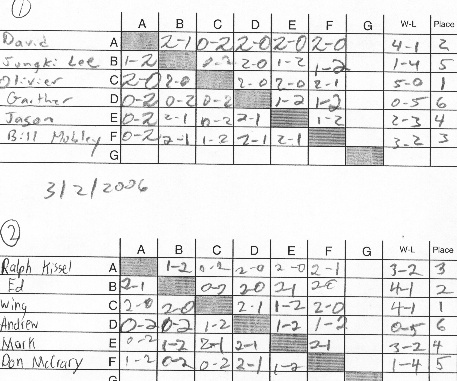 1
A B C D E F G W-L Place
David A 2-1 0-2 2-0 2-0 2-0 4-1 2
Jungki Lee B 1-2 0-2 2-0 1-2 1-2 1-4 5
Olivier C 2-0 2-0 2-0 2-0 2-1 5-0 1
Gaither D 0-2 0-2 0-2 1-2 1-2 0-5 6
Jason E 0-2 2-1 0-2 2-1 1-2 2-3 4
Bill Mobley F 0-2 2-1 1-2 2-1 2-1 3-2 3
G
3/2/2006
2
A B C D E F G W-L Place
Ralph Kissel A 1-2 0-2 2-0 2-0 2-1 3-2 3
Ed B 2-1 0-2 2-0 2-1 2-0 4-1 2
Wing C 2-0 2-0 2-1 1-2 2-0 4-1 1
Andrew D 0-2 0-2 1-2 1-2 1-2 0-5 6
Mark E 0-2 1-2 2-1 2-1 2-1 3-2 4
Don McCrary F 1-2 0-2 0-2 2-1 1-2 1-4 5